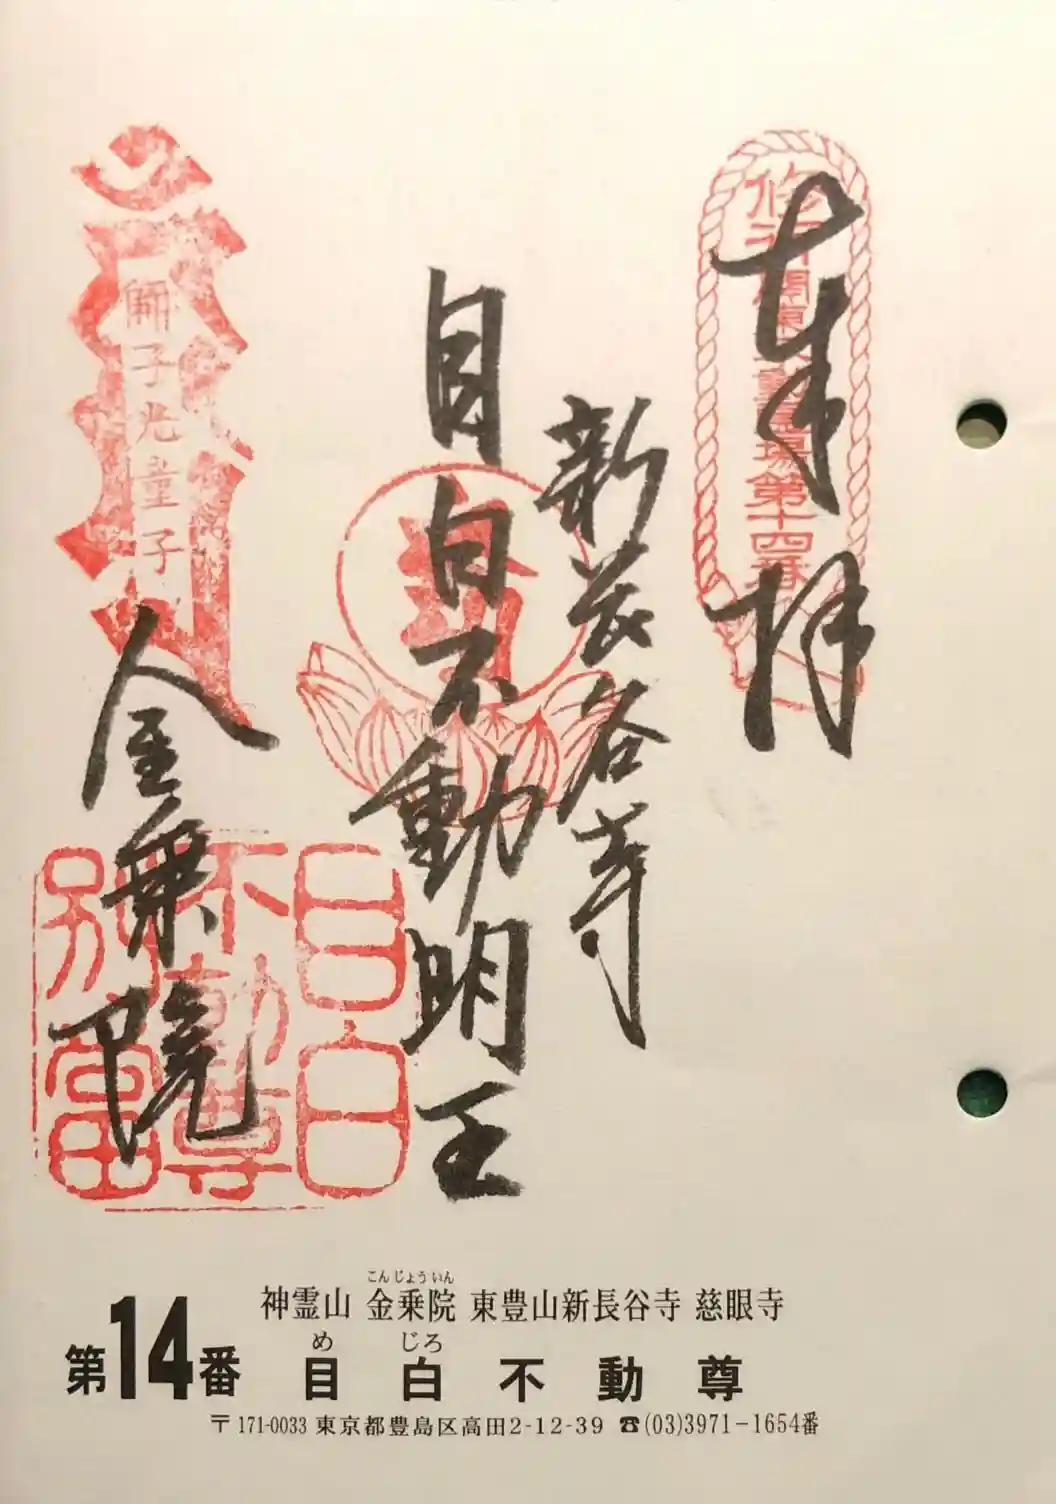 奉拝
修行関東不動霊場第十四番
新長谷寺
目白不動明王
獅子光童子
金乗院
目白
不動尊
別當
こんじょういん
神霊山 金乗院 東豊山新長谷寺 慈眼寺
め じろ
第14番 目白不動尊
〒171-0033 東京都豊島区高田2-12-39 ☎(03)3971-1654番